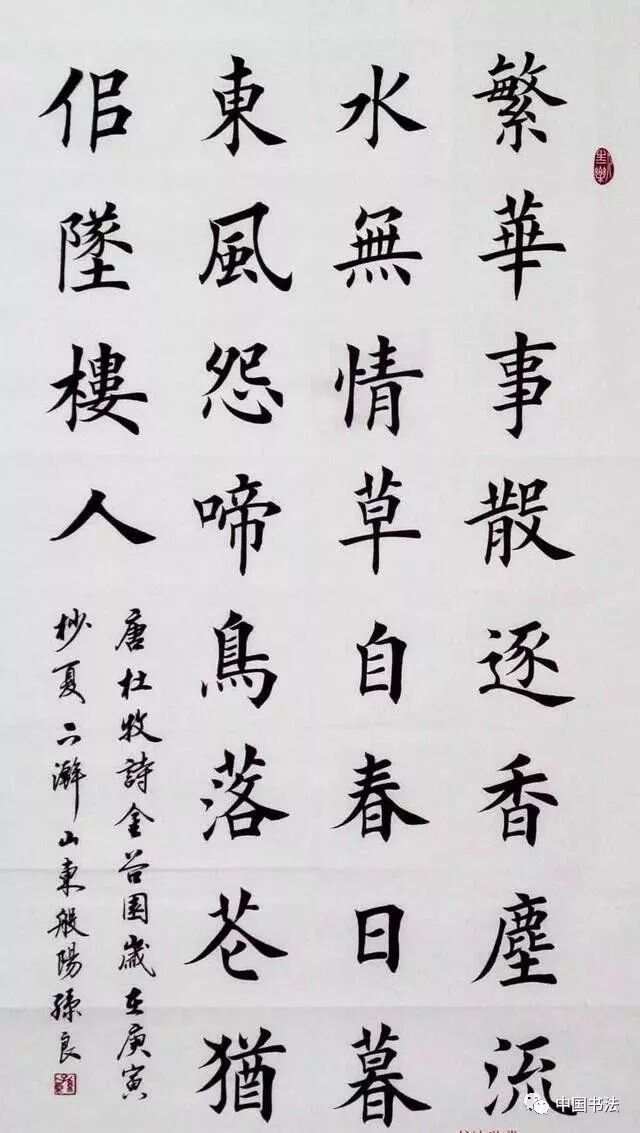 繁華事散逐香塵流
水無情草自春日暮
東風怨啼鳥落花猶
佀墜樓人
唐杜牧詩金谷園歲在庚寅
杪夏下澣山東般陽孫良
中国书法